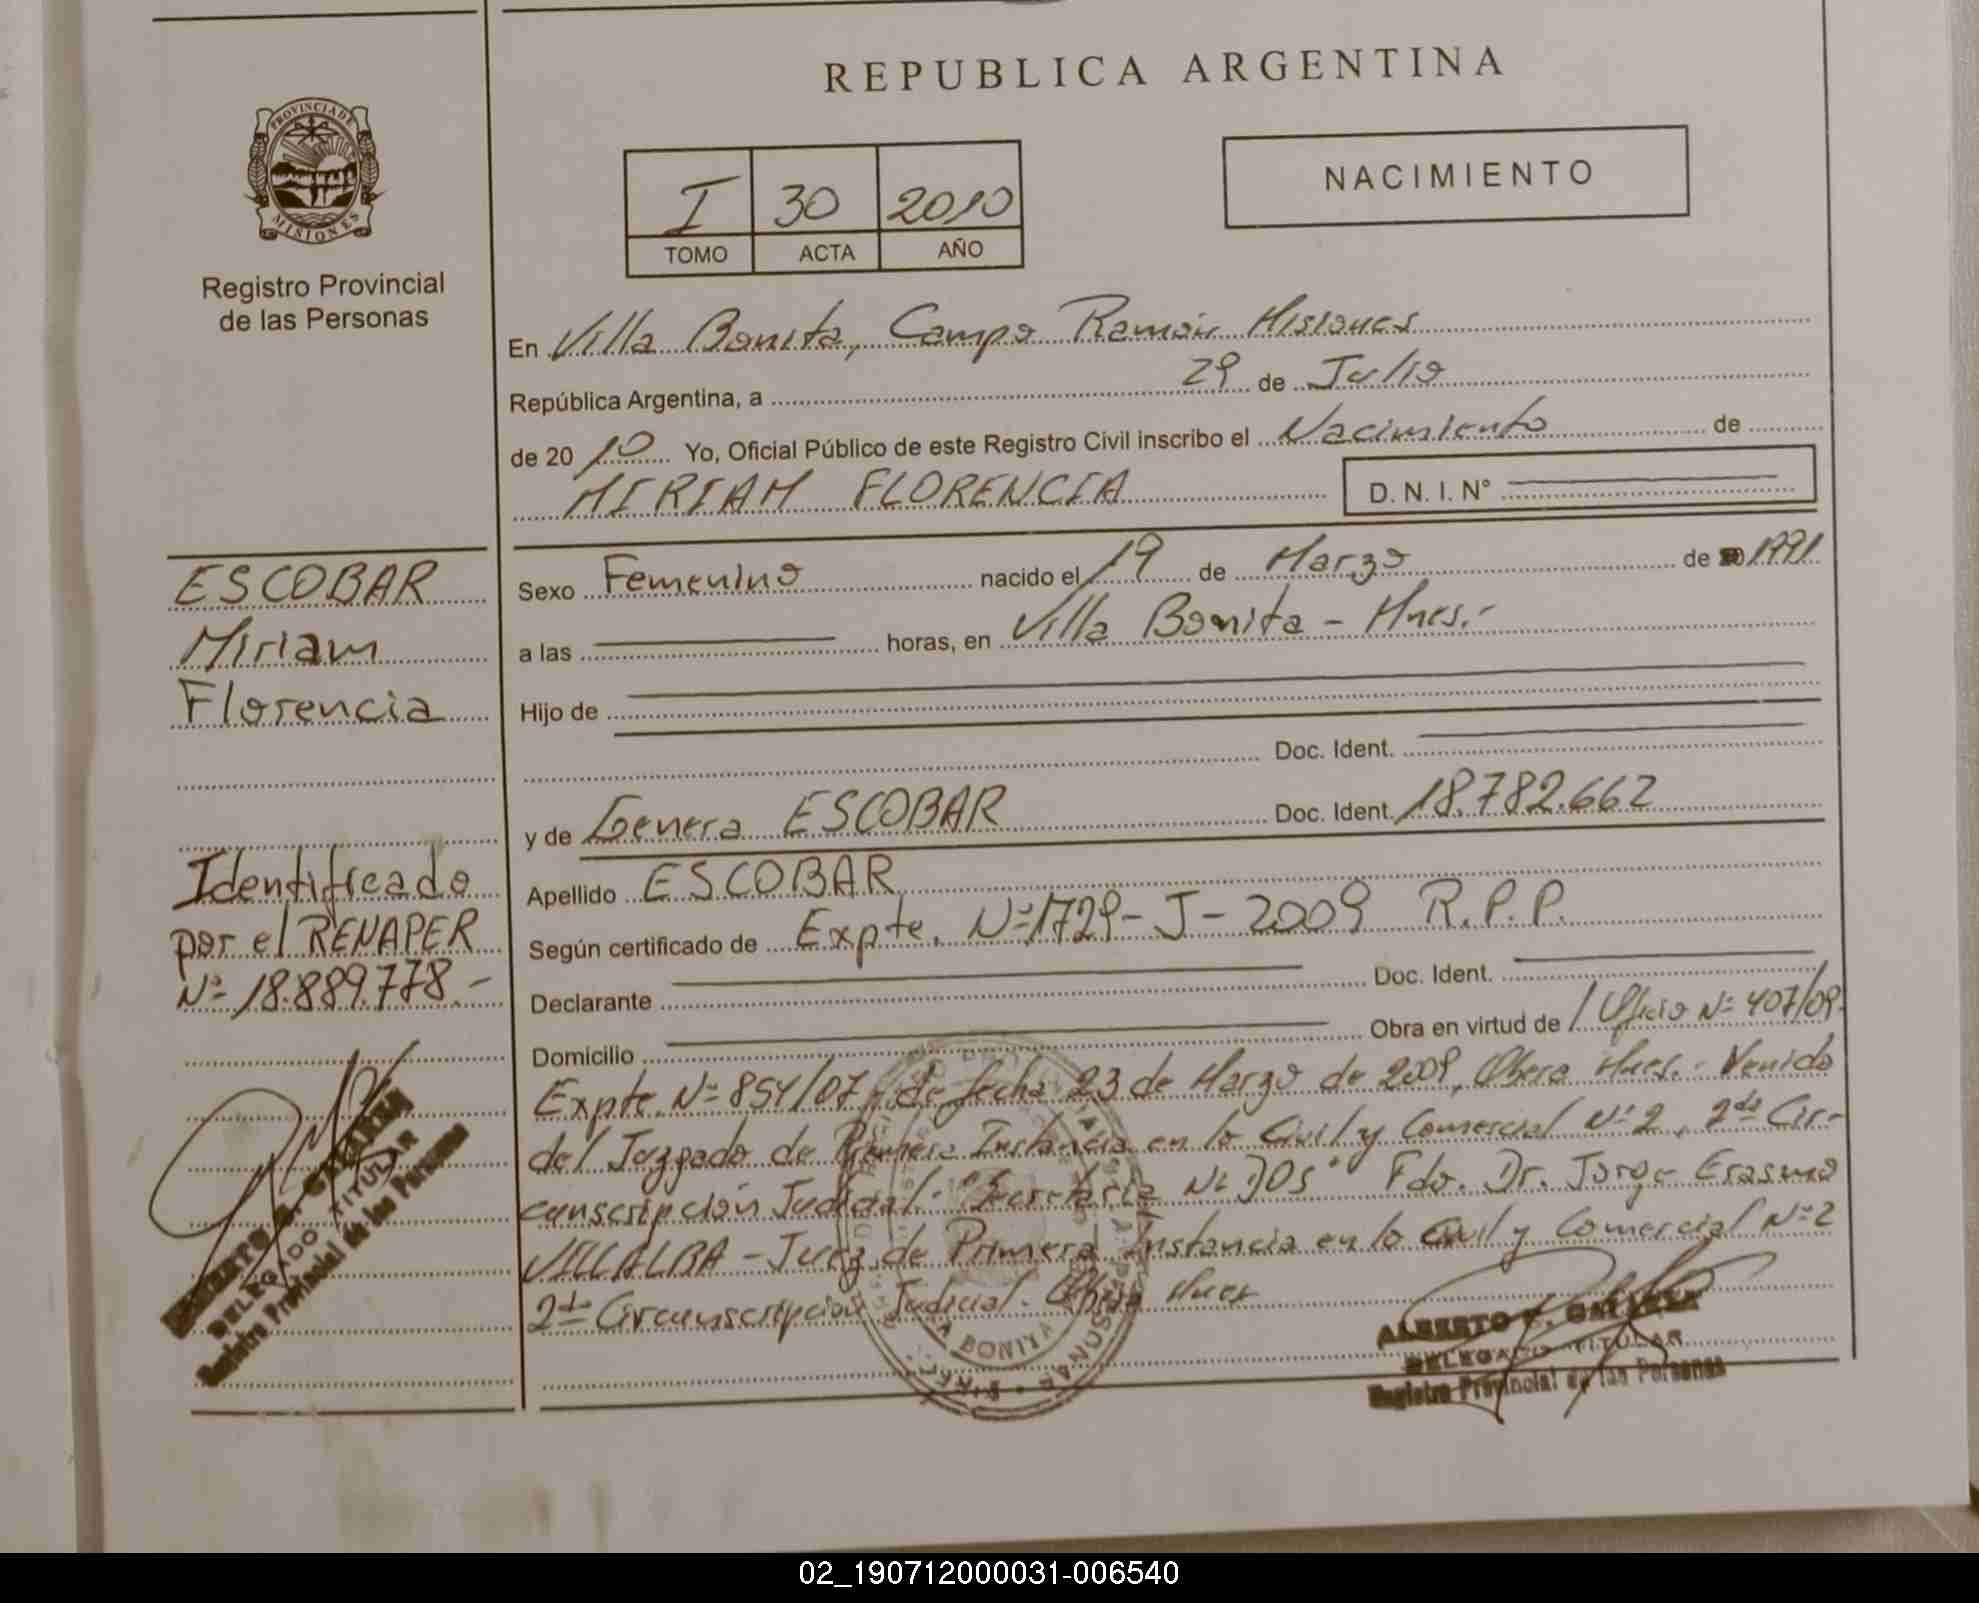 REPUBLICA ARGENTINA
PROVINCIA DE
MISIONES
Registro Provincial
de las Personas
I 30 2010
TOMO ACTA AÑO
NACIMIENTO
En Villa Bonita, Campo Ramón Misiones
República Argentina, a 29 de Julio
de 20 10 Yo, Oficial Público de este Registro Civil inscribo el Nacimiento de
MIRIAM FLORENCIA D. N. I. N°
ESCOBAR
Miriam
Florencia
Sexo Femenino nacido el 19 de Marzo de 1991
a las horas, en Villa Bonita - Mnes.-
Hijo de
Doc. Ident.
y de Genera ESCOBAR Doc. Ident. 18.782.662
Apellido ESCOBAR
Según certificado de Expte. Nº 1729-J-2009 R.P.P.
Declarante Doc. Ident.
Domicilio Obra en virtud de / Oficio Nº 407/09-
Expte. Nº 854/07, de fecha 23 de Marzo de 2009, Obera Mnes.- Venido
del Juzgado de Primera Instancia en lo Civil y Comercial Nº 2, 2da Cir-
cunscripción Judicial- "Secretaria Nº DOS" Fdo. Dr. Jorge Erasmo
VILLALBA - Juez de Primera Instancia en lo Civil y Comercial Nº 2
2da Circunscripción Judicial. Obera Mnes
Identificado
por el RENAPER
Nº 18.889.778.-
DELEGADO TITULAR
Registro Provincial de las Personas
BONITA
ALBERTO
DELEGADO TITULAR
Registro Provincial de las Personas
02_190712000031-006540